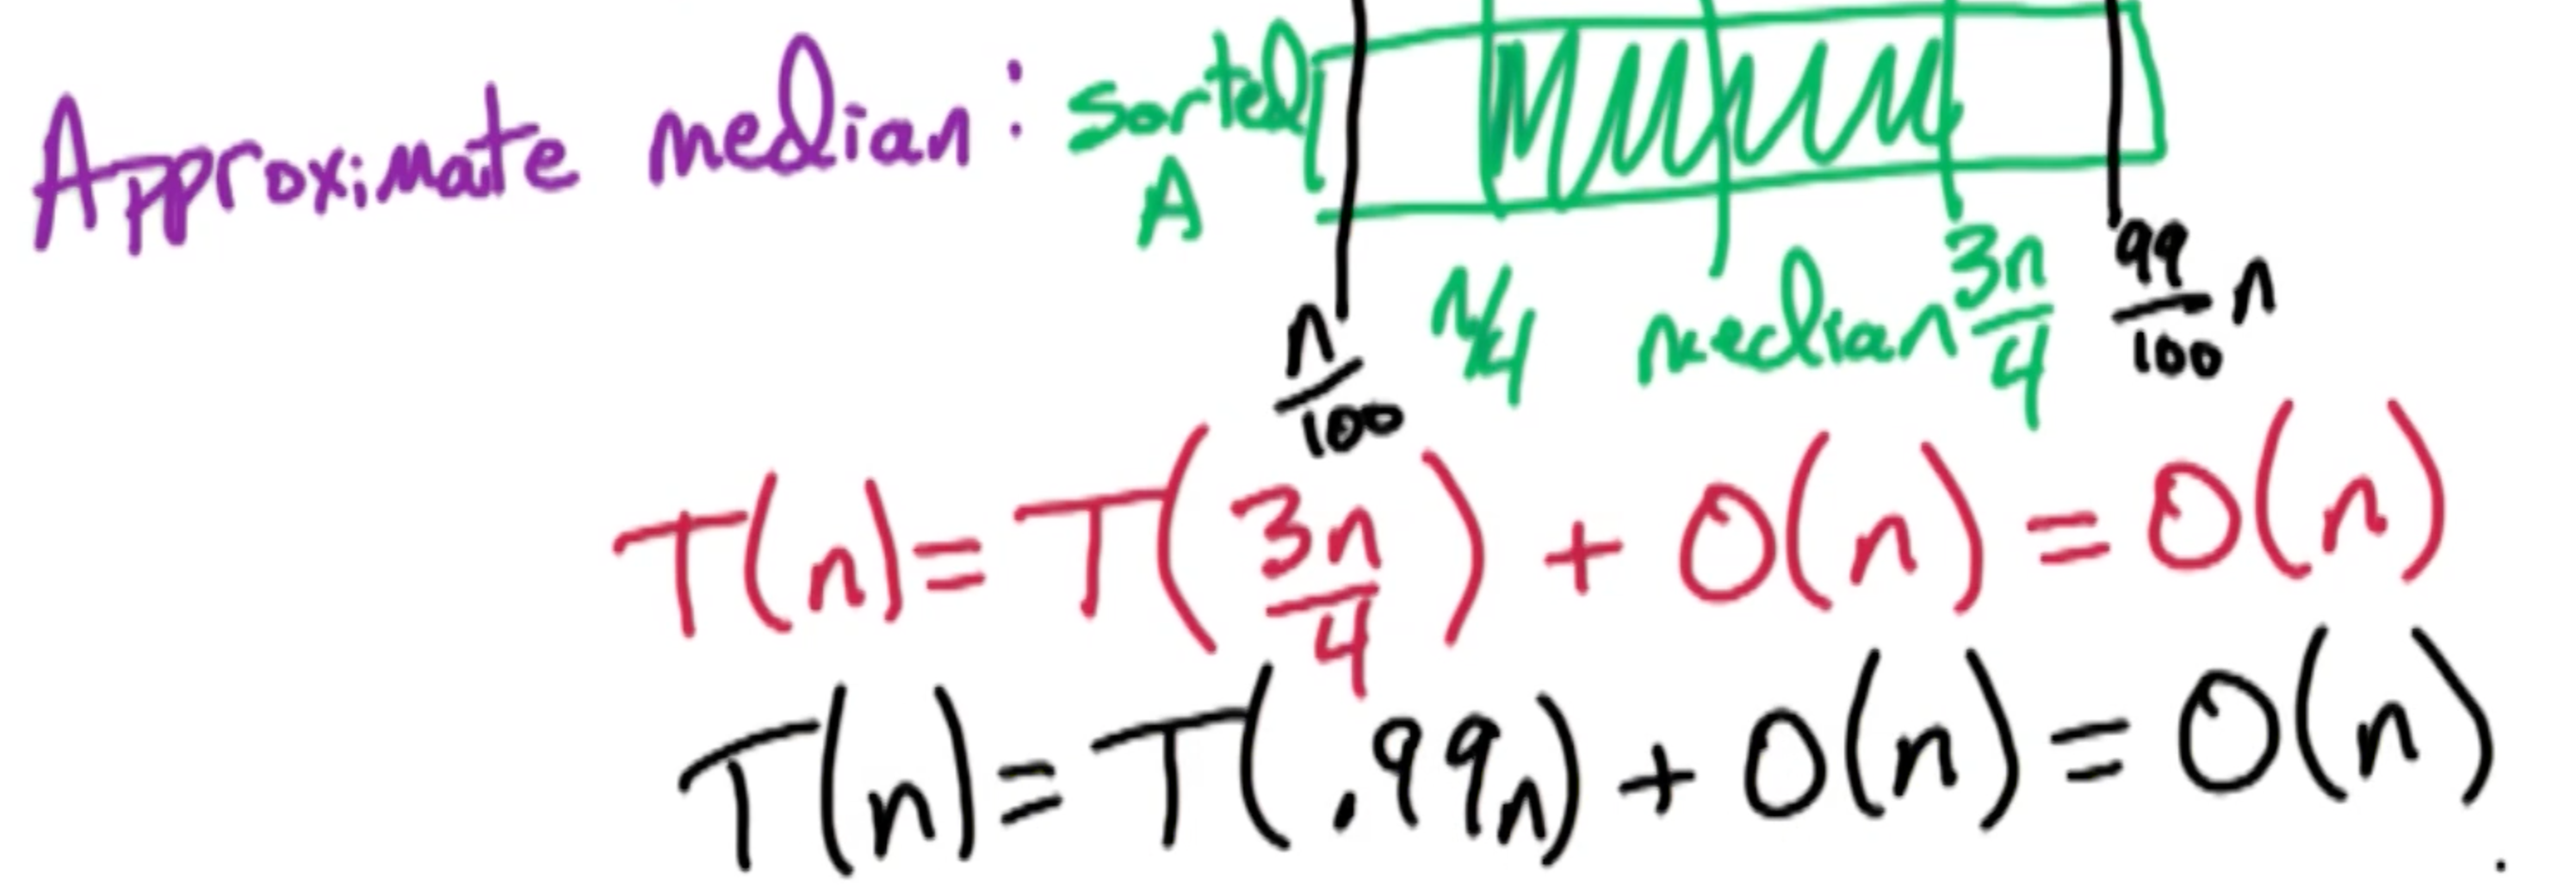 Approximate median: sorted A
n/100 n/4 median 3n/4 99/100 n
T(n) = T(3n/4) + O(n) = O(n)
T(n) = T(.99n) + O(n) = O(n)